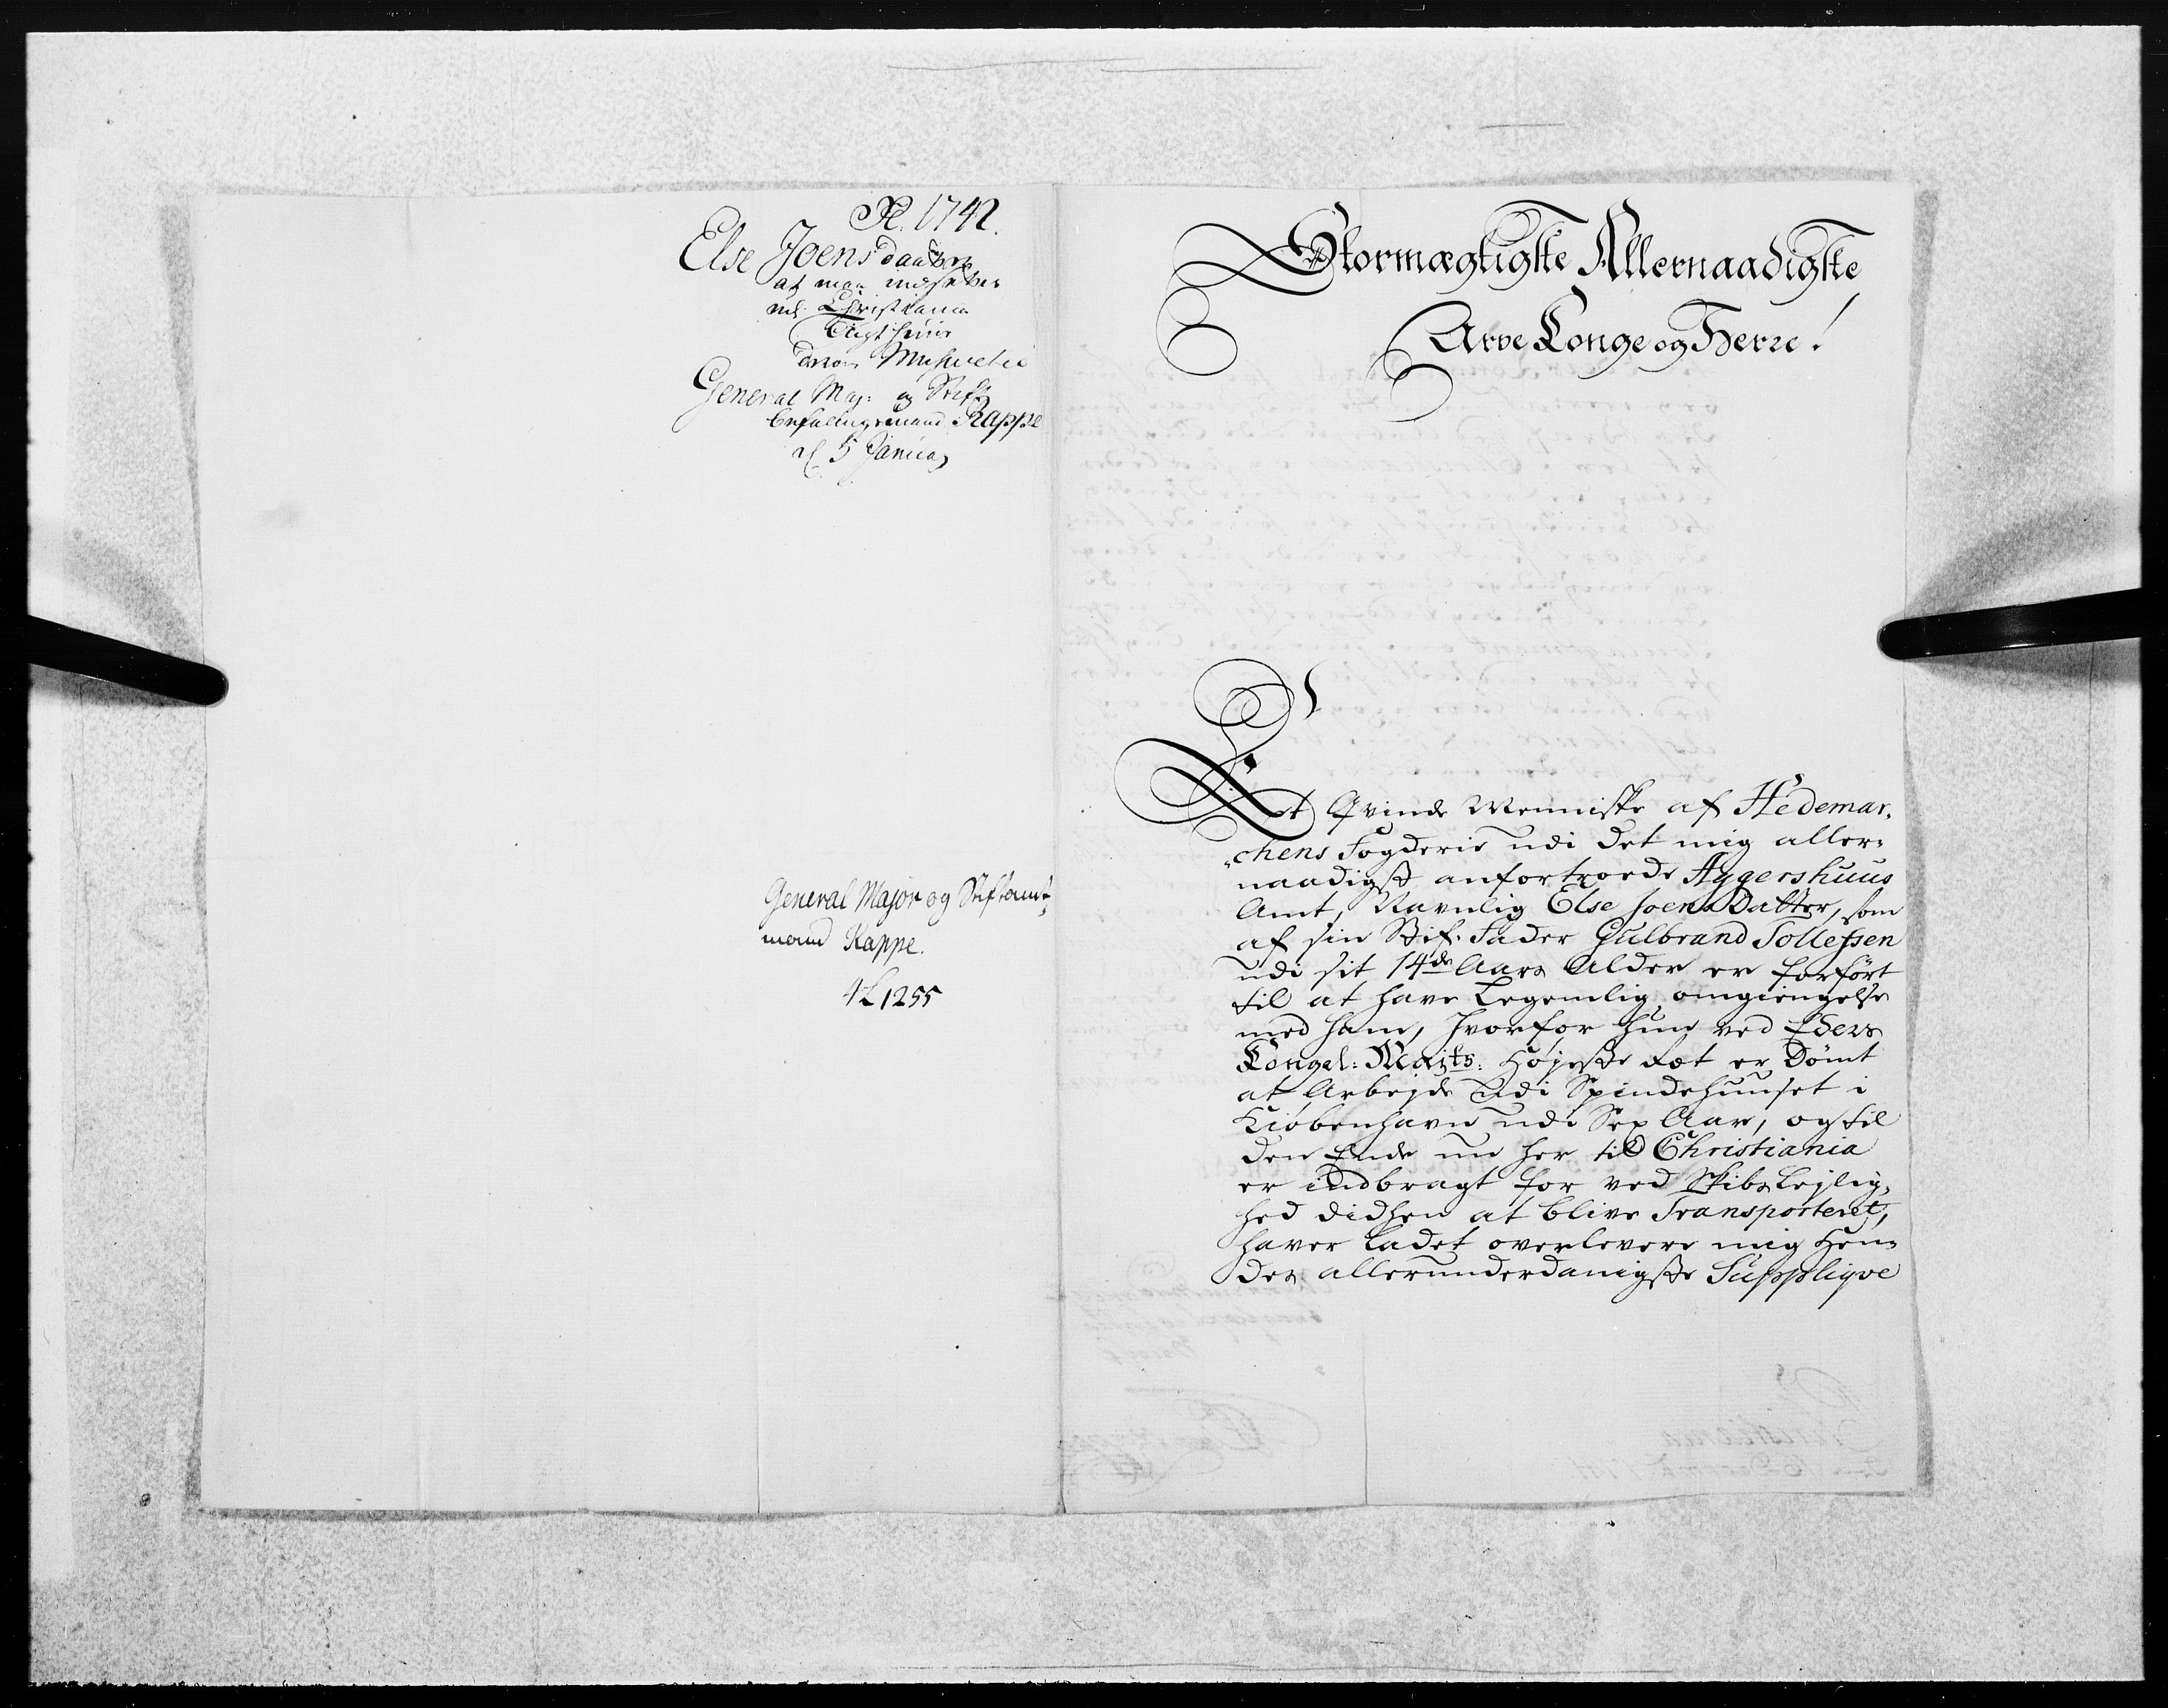 1742.
Else Joens daatter
at maa indsettes
udi Christiania
Tugthuus
General Maj: og Stift
befalingsmand Rappe
d 5 Januar
General Major og Stiftamt-
mand Rappe.
1255
Stormægtigste Allernaadigste
Arve Konge og Herre!
Et Qvinde Menniske af Hedemar-
chens Fogderie udi det mig aller-
naadigst anfortroede Aggershuus
Amt, Navnlig Else Joens Datter, som
af sin Stif-Fader Gulbrand Tollefsen
udi sit 14de Aars Alder er forført
til at have Legemlig omgiengelse
med ham, hvorfor hun ved Eders
Kongel: Mayts: Højeste Ræt er Dømt
at Arbejde udi Spindehuuset i
Kiøbenhavn udi Sex Aar, og til
den Ende nu her til Christiania
er indbragt for ved Skibs Lejlig-
hed didhen at blive Transporteret,
haver ladet overlevere mig Hen-
des allerunderdanigste Supplique